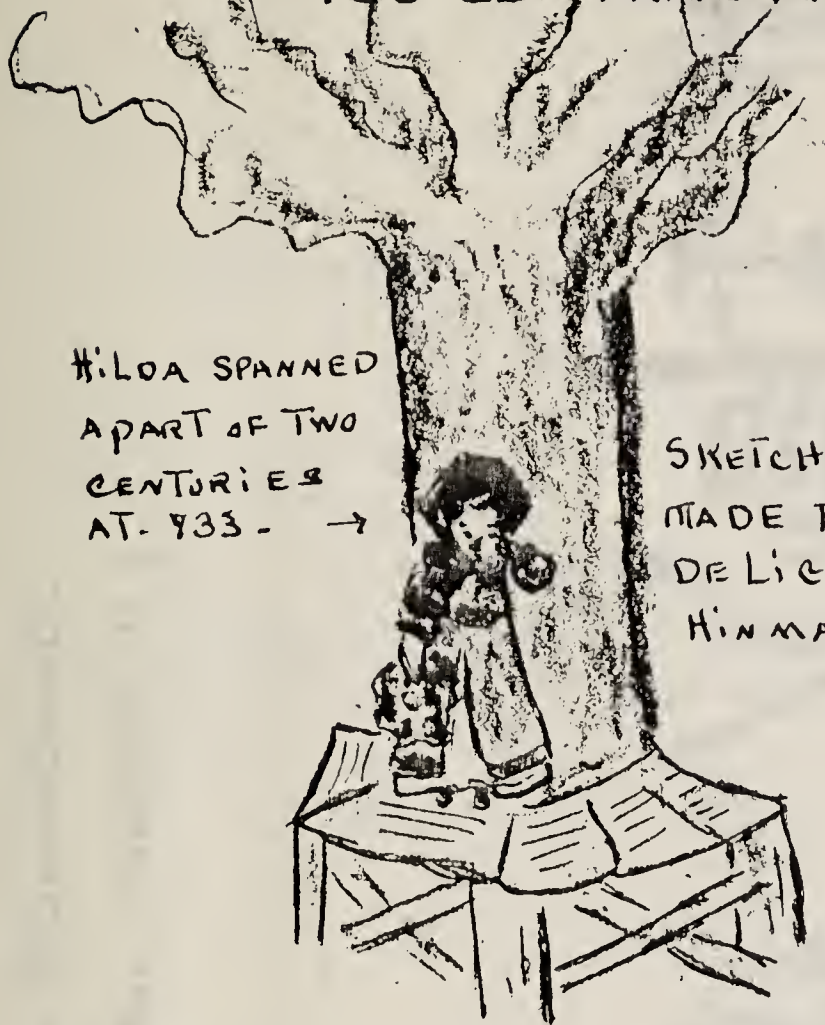 HiLDA SPANNED
A PART OF TWO
CENTURIES
AT- →
SKETCH
MADE
DELiC
HiNMA